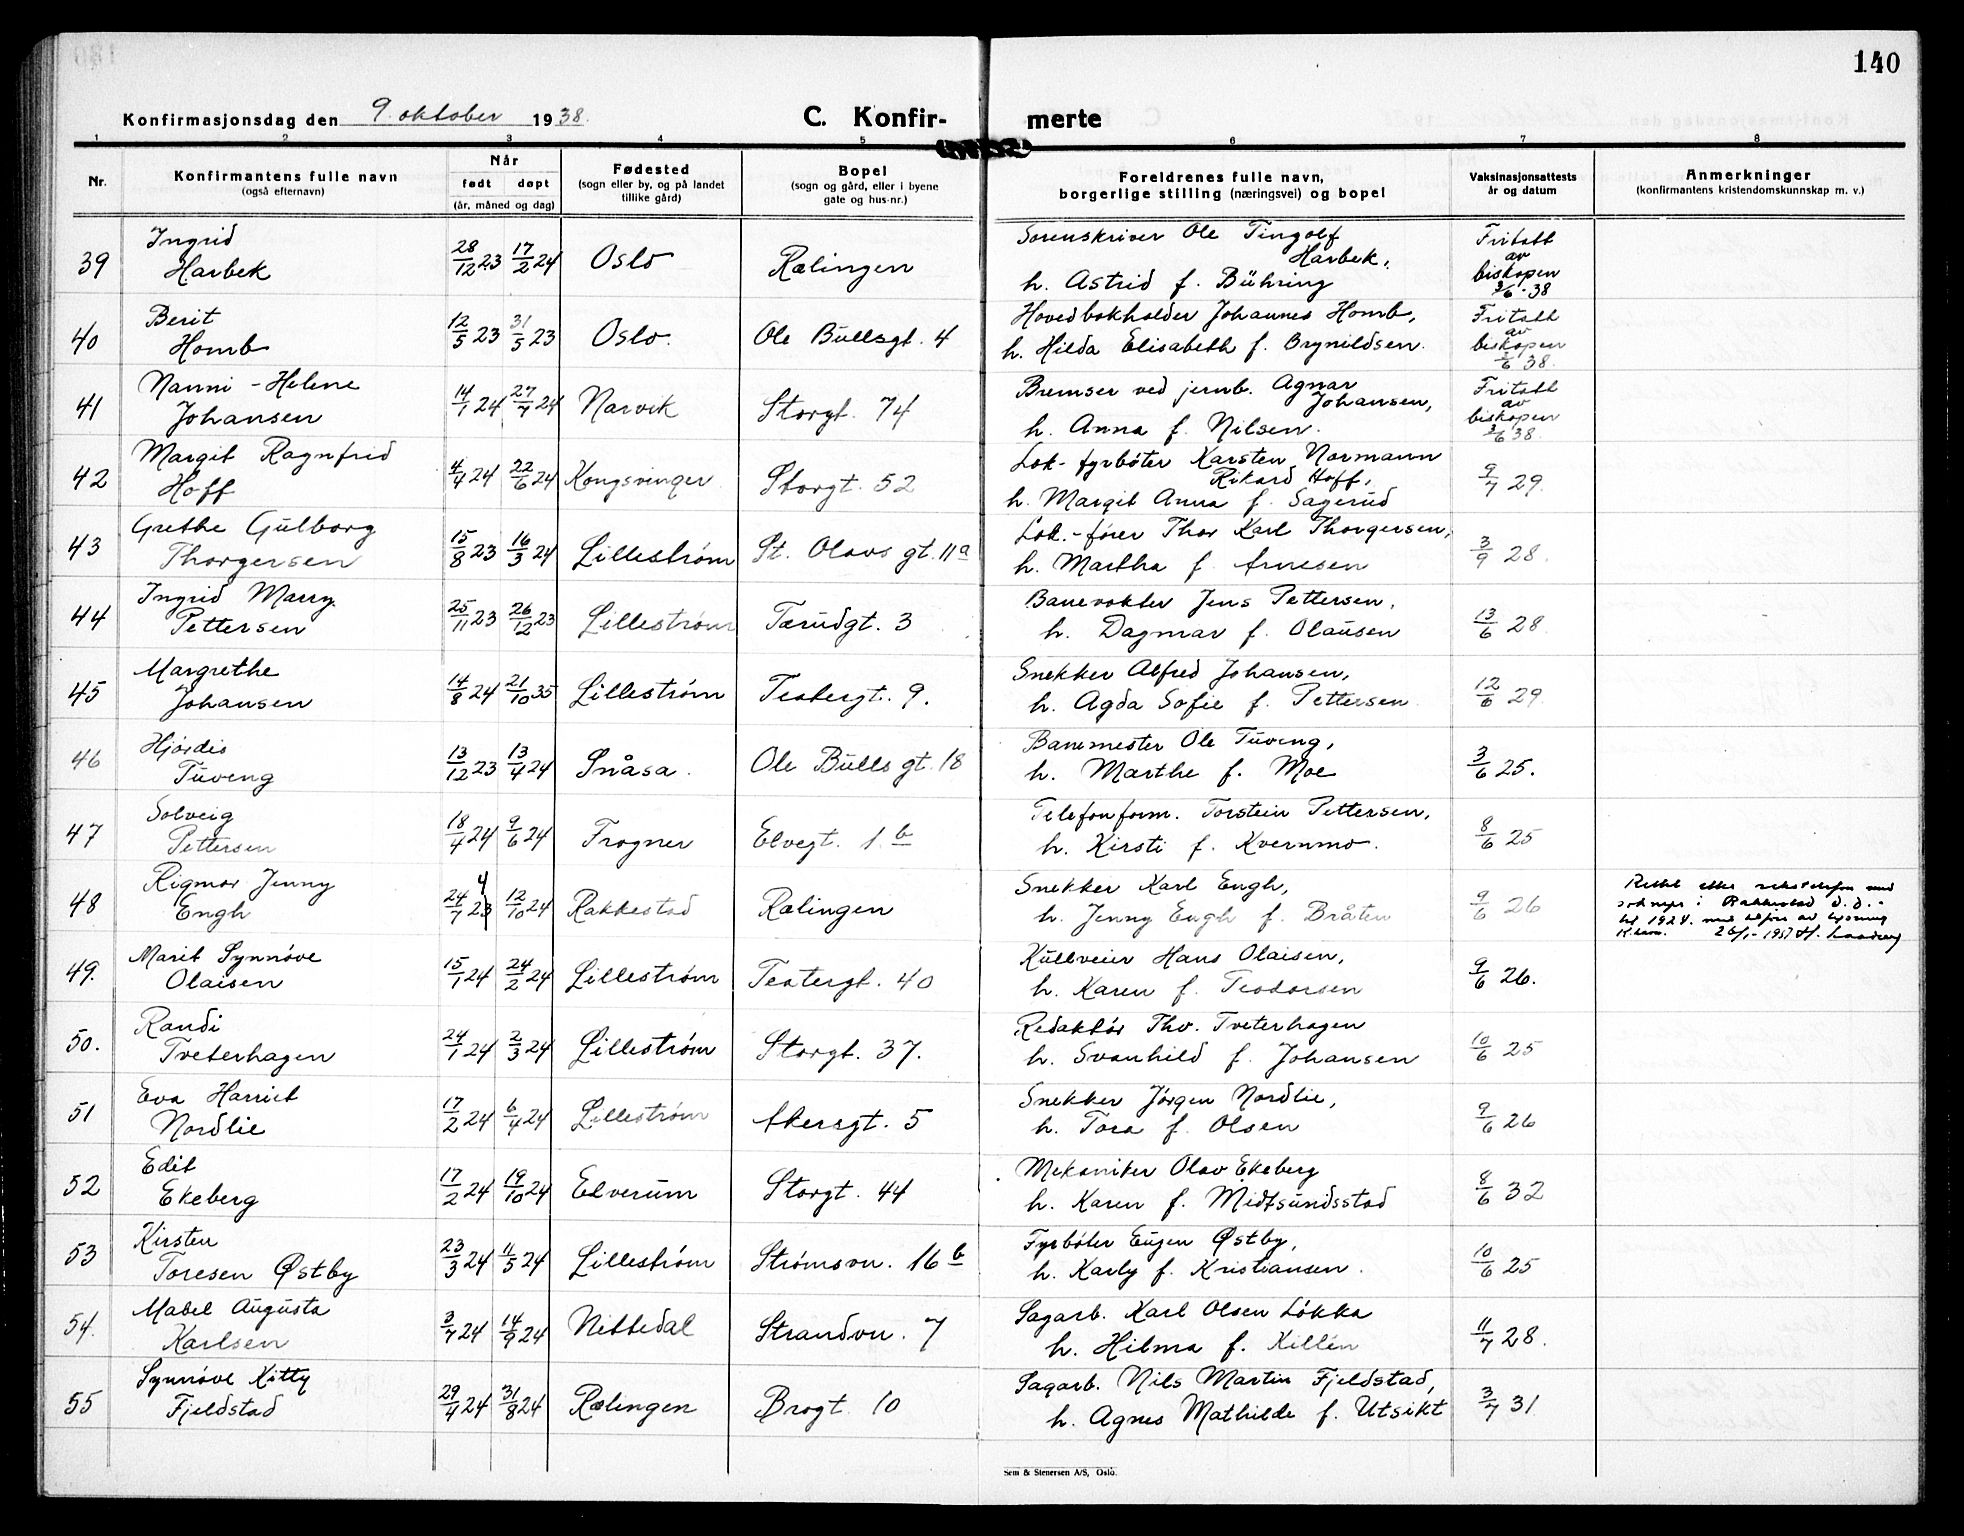 140
Konfirmasjonsdag den 9. oktober 1938.
C. Konfir-
merte
1 2 3 4 5 6 7 8
Nr.
Konfirmantens fulle navn
(også efternavn)
Når
født døpt
(år, måned og dag)
Fødested
(sogn eller by, og på landet
tillike gård)
Bopel
(sogn og gård, eller i byene
gate og hus-nr.)
Foreldrenes fulle navn,
borgerlige stilling (næringsvei) og bopel
Vaksinasjonsattests
år og datum
Anmerkninger
(konfirmantens kristendomskunnskap m. v.)
39 Ingrid
Harbek 28/12 23 17/2 24 Oslo Rælingen
Sorenskriver Ole Tingolf
Harbek,
h. Astrid f. Bühring
Fritatt
av
biskopen
3/6-38
40 Berit
Homb 12/5 23 31/5 23 Oslo. Ole Bullsgt. 4
Hovedbokholder Johannes Homb,
h. Hilda Elisabeth f. Brynildsen.
Fritatt
av
biskopen
3/6 38.
41 Nanni-Helene
Johansen 14/1 24 27/7 24 Narvik Storgt. 74
Bremser ved jernb. Agnar
Johansen,
h. Anna f. Nilsen.
Fritatt
av
biskopen
3/6 38.
42 Margit Ragnfrid
Hoff 4/4 24 22/6 24 Kongsvinger Storgt. 52
Lok-fyrbøter Karsten Normann
Rikard Hoff,
h. Margit Anna f. Sagerud
9/7 29.
43 Grethe Gulborg
Thorgersen 15/8 23 16/3 24 Lillestrøm St. Olavs gt. 11a
Lok.-fører Thor Karl Thorgersen,
h. Martha f. Arnesen
3/9 28.
44 Ingrid Marry
Pettersen 25/11 23 26/12 23 Lillestrøm Tærudgt. 3
Banevokter Jens Pettersen,
h. Dagmar f. Olausen
13/6 28.
45 Margrethe
Johansen 14/8 24 21/10 35 Lillestrøm Teatergt. 9.
Snekker Alfred Johansen,
h. Agda Sofie f. Pettersen
12/6 29.
46 Hjørdis
Tuveng 13/12 23 13/4 24 Snåsa. Ole Bulls gt. 18
Banemester Ole Tuveng,
h. Marthe f. Moe
3/6 25.
47 Solveig
Pettersen 18/4 24 9/6 24 Frogner Elvegt. 1.b
Telefonform. Torstein Pettersen,
h. Kirsti f. Kvernmo.
8/6 25
48 Rigmor Jenny
Engh 24/7 23 4 12/10 24 Rakkestad Rælingen
Snekker Karl Engh,
h. Jenny Engh f. Bråten
9/6 26
Rettet etter
i Rakkestad d.d.
1924. av
26/1-1957
49. Marit Synnøve
Olaisen 15/1 24 24/2 24 Lillestrøm Teatergt. 40
Kullveier Hans Olaisen,
h. Karen f. Teodorsen
9/6 26.
50. Randi
Tveterhagen 24/1 24 2/3 24 Lillestrøm Storgt. 37.
Redaktør Thv. Tveterhagen
h. Svanhild f. Johansen
10/6 25
51 Eva Harriet
Nordlie 17/2 24 6/4 24 Lillestrøm Akersgt. 5
Snekker Jørgen Nordlie,
h. Tora f. Olsen
9/6 26
52 Edit
Ekeberg 17/2 24 19/10 24 Elverum Storgt. 44
Mekaniker Olav Ekeberg
h. Karen f. Midtsundsstad
8/6 32
53 Kirsten
Toresen Østby 23/3 24 11/5 24 Lillestrøm Strømsvn. 16 b
Fyrbøter Eugen Østby,
h. Karly f. Kristiansen.
10/6 25
54. Mabel Augusta
Karlsen 3/7 24 14/9 24 Nittedal Strandvn. 7
Sagarb. Karl Olsen Løkka
h. Hilma f. Killén
11/7 28.
55 Synnøve Kitty
Fjeldstad 29/4 24 31/8 24 Rælingen Brogt. 10
Sagarb. Nils Martin Fjeldstad,
h. Agnes Mathilde f. Utsikt
3/7 31
Sem & Stenersen A/S, Oslo.